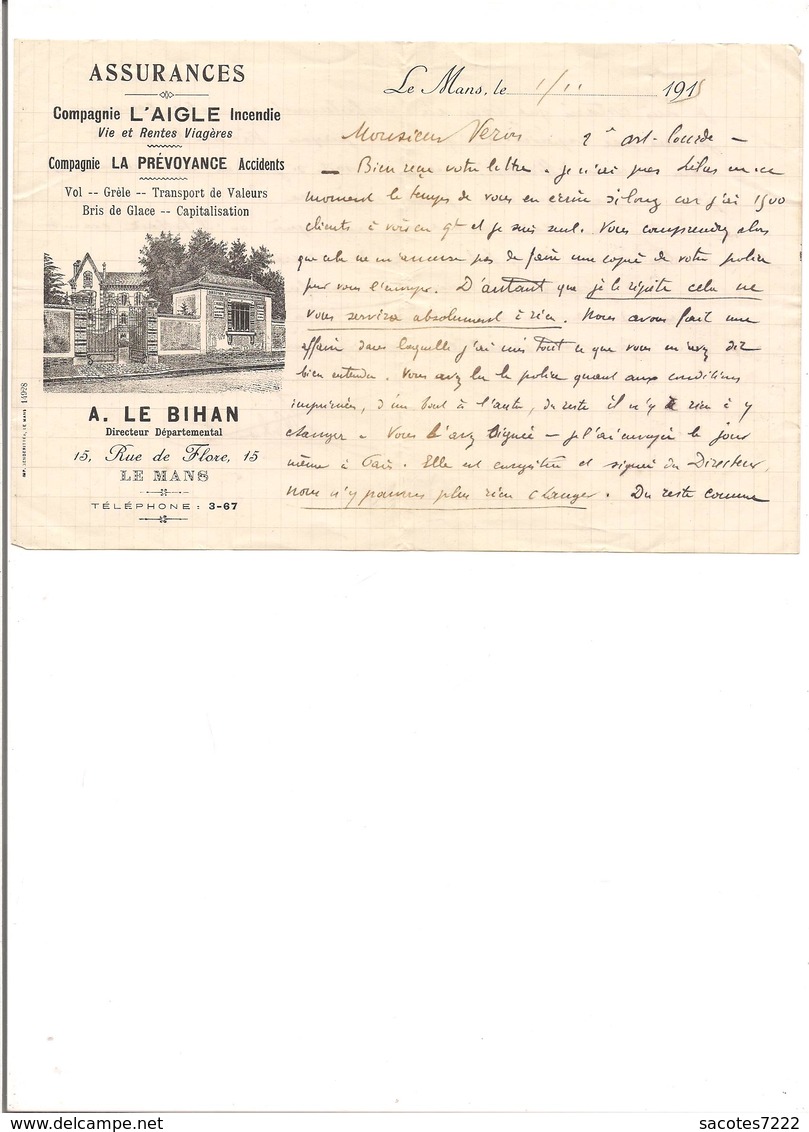 ASSURANCES
Compagnie L'AIGLE Incendie
Vie et Rentes Viagères
Compagnie LA PRÉVOYANCE Accidents
Vol -- Grêle -- Transport de Valeurs
Bris de Glace -- Capitalisation
A. LE BIHAN
Directeur Départemental
15, Rue de Flore, 15
LE MANS
TÉLÉPHONE : 3-67
14928
Le Mans, le 1/11 1915
Monsieur Veron 2e art. lourde —
— Bien reçu votre lettre. je n'ai pas hélas en ce
moment le temps de vous en écrire si long car j'ai 1500
clients à voir en qt et je suis seul. Vous comprendrez alors
que cela ne m'amuse pas de faire une copie de votre police
pour vous l'envoyer. D'autant que je le répète cela ne
vous servira absolument à rien. Nous avons fait une
affaire dans laquelle j'ai mis tout ce que vous m'avez dit
bien entendu. Vous avez lu la police quant aux conditions
imprimées, d'un bout à l'autre, du reste il n'y a rien à y
changer. Vous l'avez signée — je l'ai envoyée le jour
même à Paris. Elle est enregistrée et signée du Directeur,
nous n'y pouvons plus rien changer. Du reste comme
sacotes7222